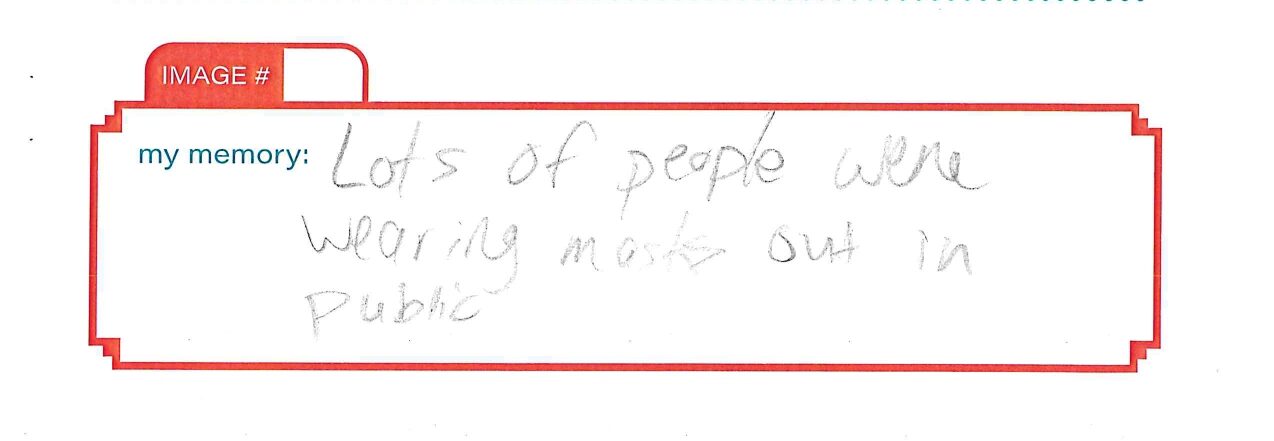 IMAGE #
my memory: Lots of people were
wearing masks out in
public